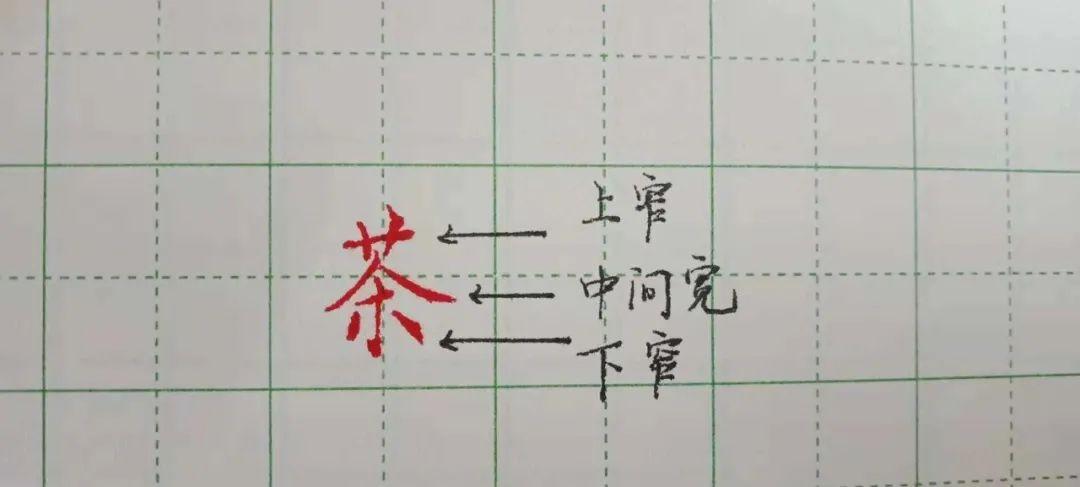 茶
上窄
中间宽
下窄